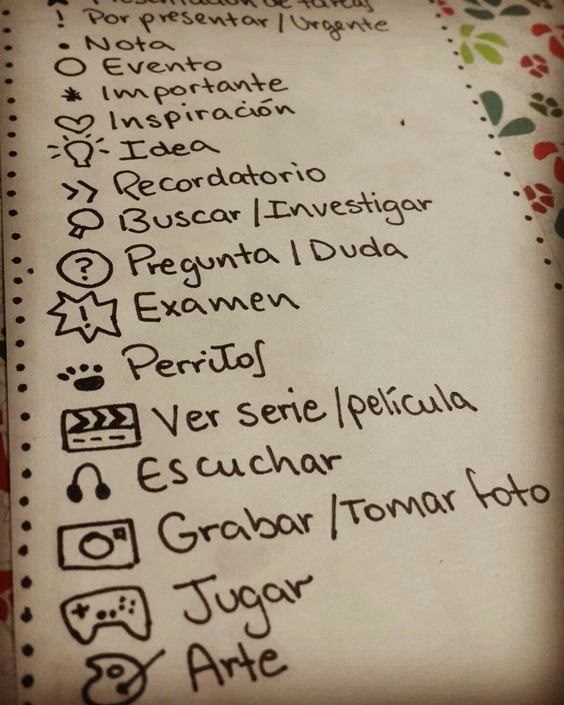 Presentación de tareas
! Por presentar/Urgente
• Nota
○ Evento
* Importante
♡ Inspiración
Idea
>> Recordatorio
Buscar/Investigar
? Pregunta/Duda
! Examen
Perritos
Ver serie/película
Escuchar
Grabar/Tomar foto
Jugar
Arte